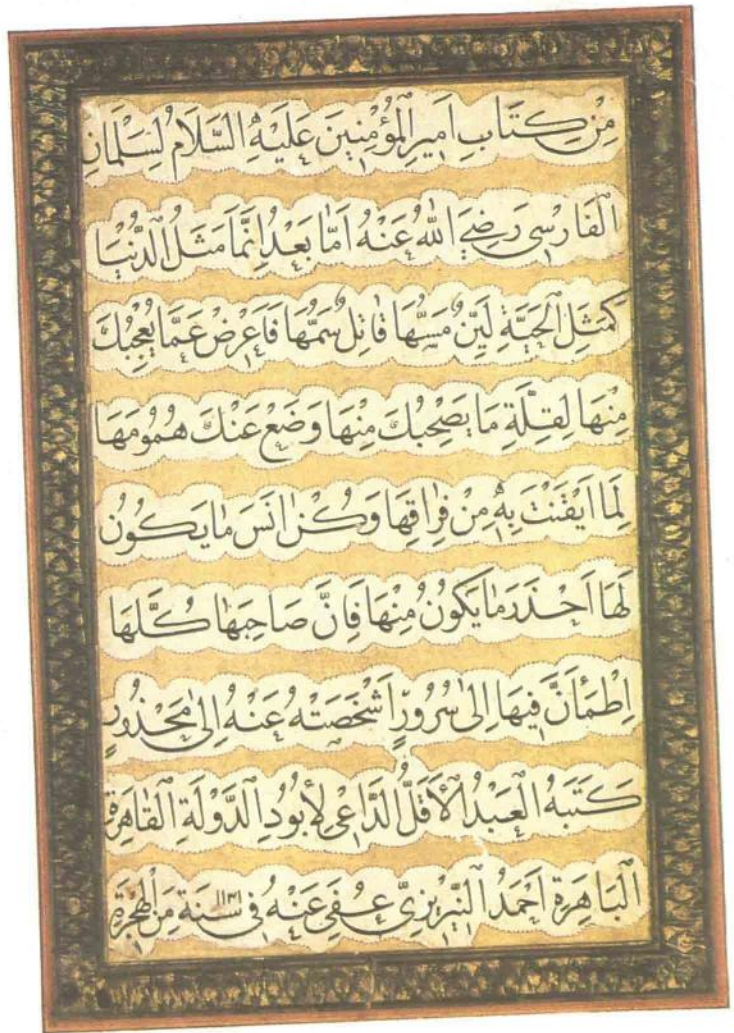 مِنْ كِتَابِ اَمِيرِ الْمُؤْمِنِينَ عَلَيْهِ السَّلَامُ لِسَلْمَانِ
الْفَارْسِی رَضِیَ اللهُ عَنْهُ اَمَّا بَعْدُ اِنَّمَا مَثَلُ الدُّنْيَا
كَمَثَلِ الْحَيَّةِ لَيِّنٌ مَسُّهَا قَاتِلٌ سَمُّهَا فَاَعْرِضْ عَمَّا يُعْجِبُكَ
مِنْهَا لِقِلَّةِ مَا يَصْحَبُكَ مِنْهَا وَضَعْ عَنْكَ هُمُومَهَا
لِمَا اَيْقَنْتَ بِهِ مِنْ فِرَاقِهَا وَكُنْ اٰنَسَ مَا يَكُونُ
لَهَا اَحْذَرَ مَا يَكُونُ مِنْهَا فَاِنَّ صَاحِبَهَا كُلَّهَا
اِطْمَأَنَّ فِيهَا اِلٰى سُرُورٍ اَشْخَصَتْهُ عَنْهُ اِلٰى مَحْذُورٍ
كَتَبَهُ الْعَبْدُ الْاَقَلُّ الدَّاعِی لِأُبُودِ الدَّوْلَةِ الْقَاهِرَةِ
الْبَاهِرَةِ اَحْمَدُ النَّيْرِيزِیُّ عُفِیَ عَنْهُ فِی سَنَةِ ١١٣١ مِنَ الْهِجْرَةِ